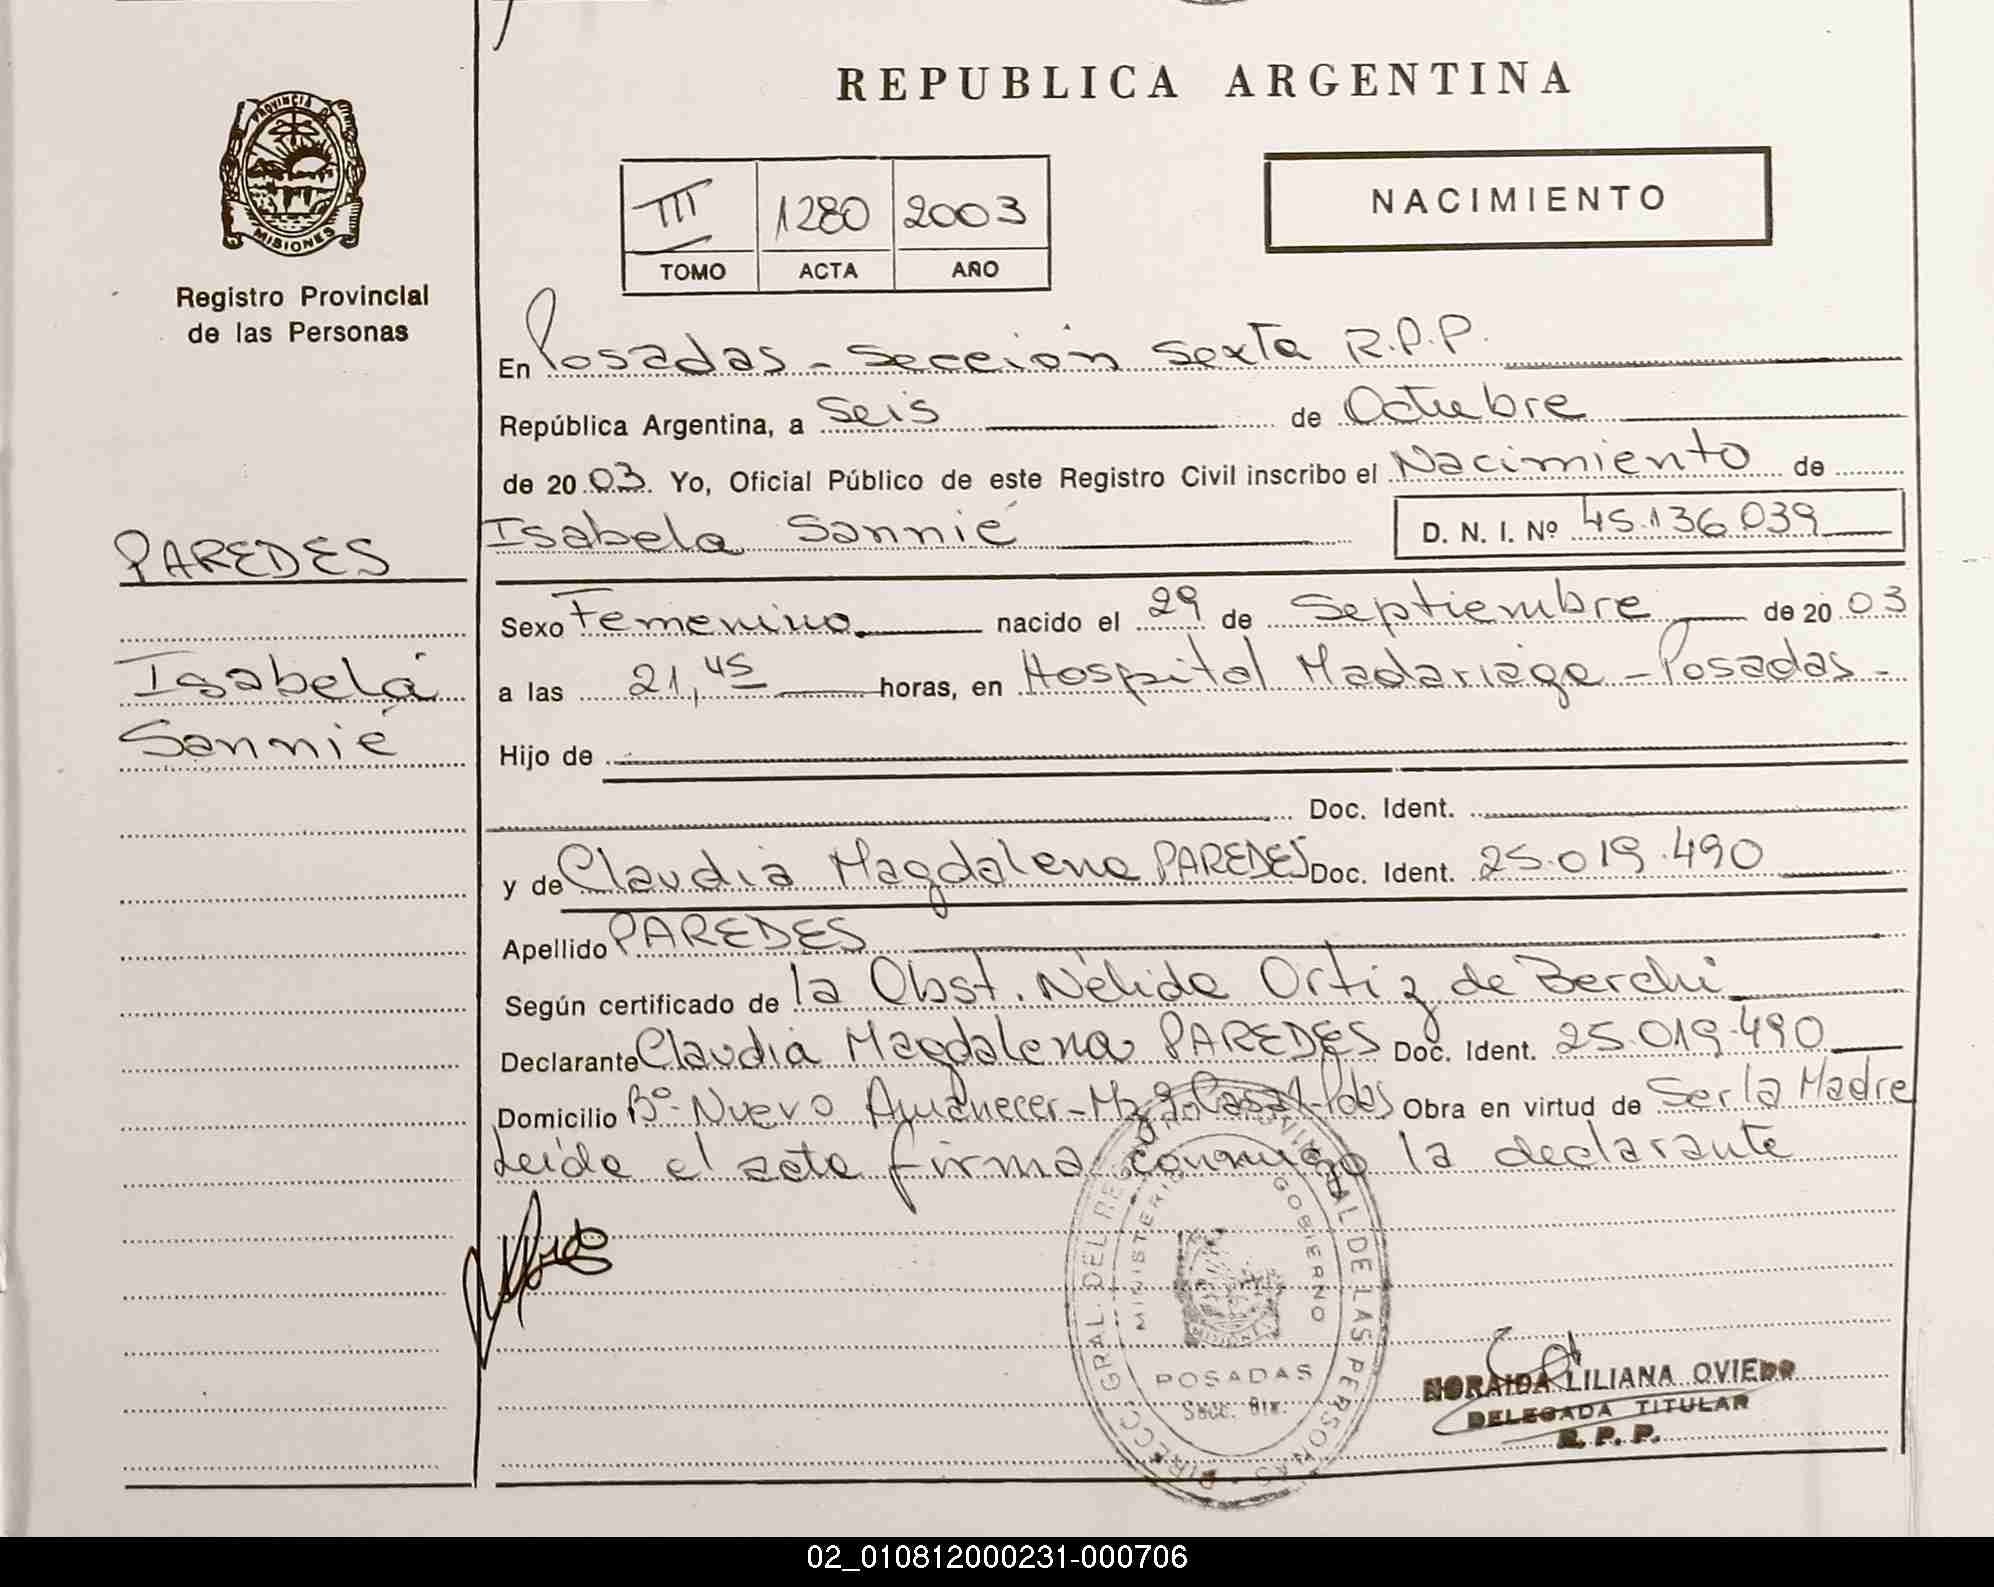 REPUBLICA ARGENTINA
PROVINCIA DE
MISIONES
Registro Provincial
de las Personas
III 1280 2003
TOMO ACTA AÑO
NACIMIENTO
En Posadas - Sección Sexta R.P.P.
República Argentina, a Seis de Octubre
de 2003 Yo, Oficial Público de este Registro Civil inscribo el Nacimiento de
Isabela Sannié D. N. I. Nº 45.136.039
PAREDES
Isabela
Sannié
Sexo Femenino nacido el 29 de Septiembre de 2003
a las 21,45 horas, en Hospital Madariaga - Posadas -
Hijo de
Doc. Ident.
y de Claudia Magdalena PAREDES Doc. Ident. 25.019.490
Apellido PAREDES
Según certificado de la Obst. Nélida Ortiz de Berchi
Declarante Claudia Magdalena PAREDES Doc. Ident. 25.019.490
Domicilio Bº Nuevo Amanecer - Mz 9 - Casa Pdas Obra en virtud de Ser la Madre
Leída el acta firma conmigo la declarante
DIRECC. GRAL. DEL REG. PROVINCIAL DE LAS PERSONAS
MINISTERIO GOBIERNO
MISIONES
POSADAS
Secc. 6ta.
NORAIDA LILIANA OVIEDO
DELEGADA TITULAR
R. P. P.
02_010812000231-000706